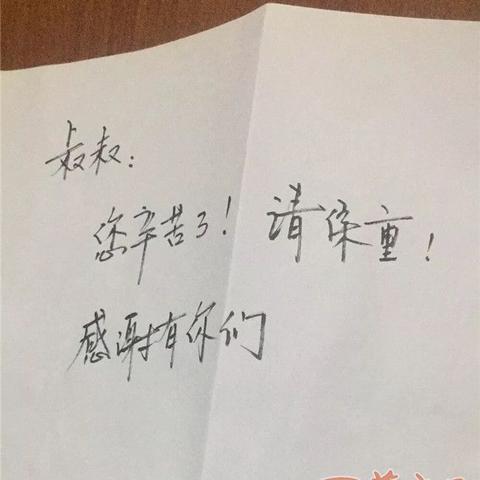 叔叔：
您辛苦了！请保重！
感谢有你们